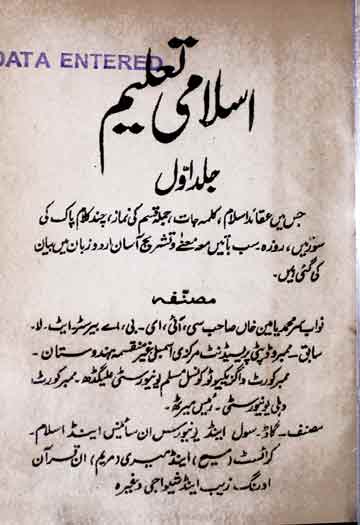 DATA ENTERED
اسلامی تعلیم
جلد اوّل
جس میں عقائد اسلام، کلمہ جات، جملہ قسم کی نماز، چند کلام پاک کی
سورتیں، روزہ سب باتیں معہ معنے و تشریح آسان اردو زبان میں بیان
کی گئی ہیں۔
مصنّفہ
نواب سر محمد یامین خاں صاحب سی، آئی، ای۔ بی، اے بیرسٹر۔ ایٹ۔ لا۔
سابق۔ ممبر و ڈپٹی پریسیڈنٹ مرکزی اسمبلی غیر منقسمہ ہندوستان۔
ممبر کورٹ و اگزیکیوٹو کونسل مسلم یونیورسٹی علیگڈھ۔ ممبر کورٹ
دہلی یونیورسٹی۔ رئیس میرٹھ۔
مصنف۔ گاڈ۔ سول اینڈ یونیورس ان سائنس اینڈ اسلام۔
کرائسٹ (مسیح) اینڈ میری (مریم) ان قرآن
اورنگ زیب اینڈ شیواجی وغیرہ